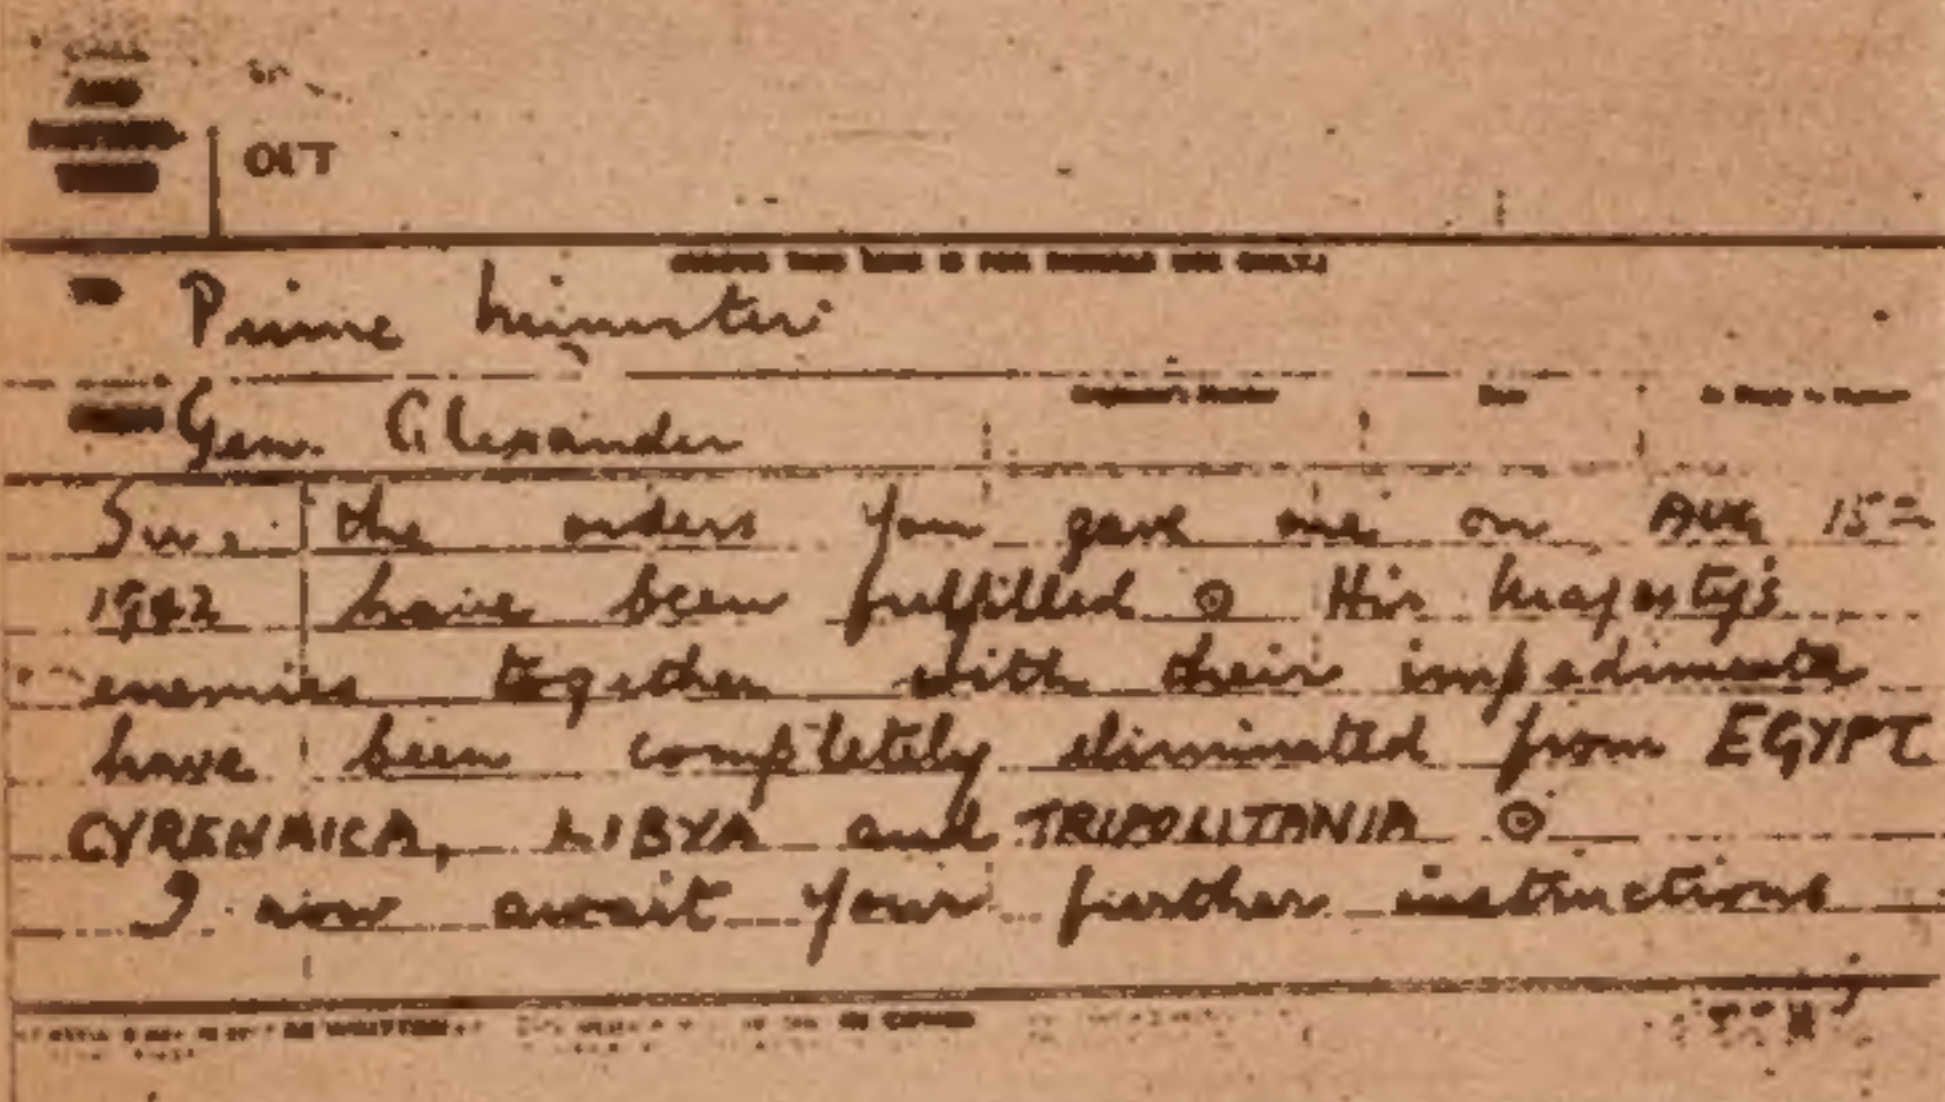 CALL
AND
OUT
TO Prime Minister
Gen. Alexander
Sir. the orders you gave me on AUG 15th
1942 have been fulfilled ⊙ His Majesty's
enemies together with their impedimenta
have been completely eliminated from EGYPT
CYRENAICA, LIBYA and TRIPOLITANIA ⊙
I now await your further instructions
AS WRITTEN IN CIPHER